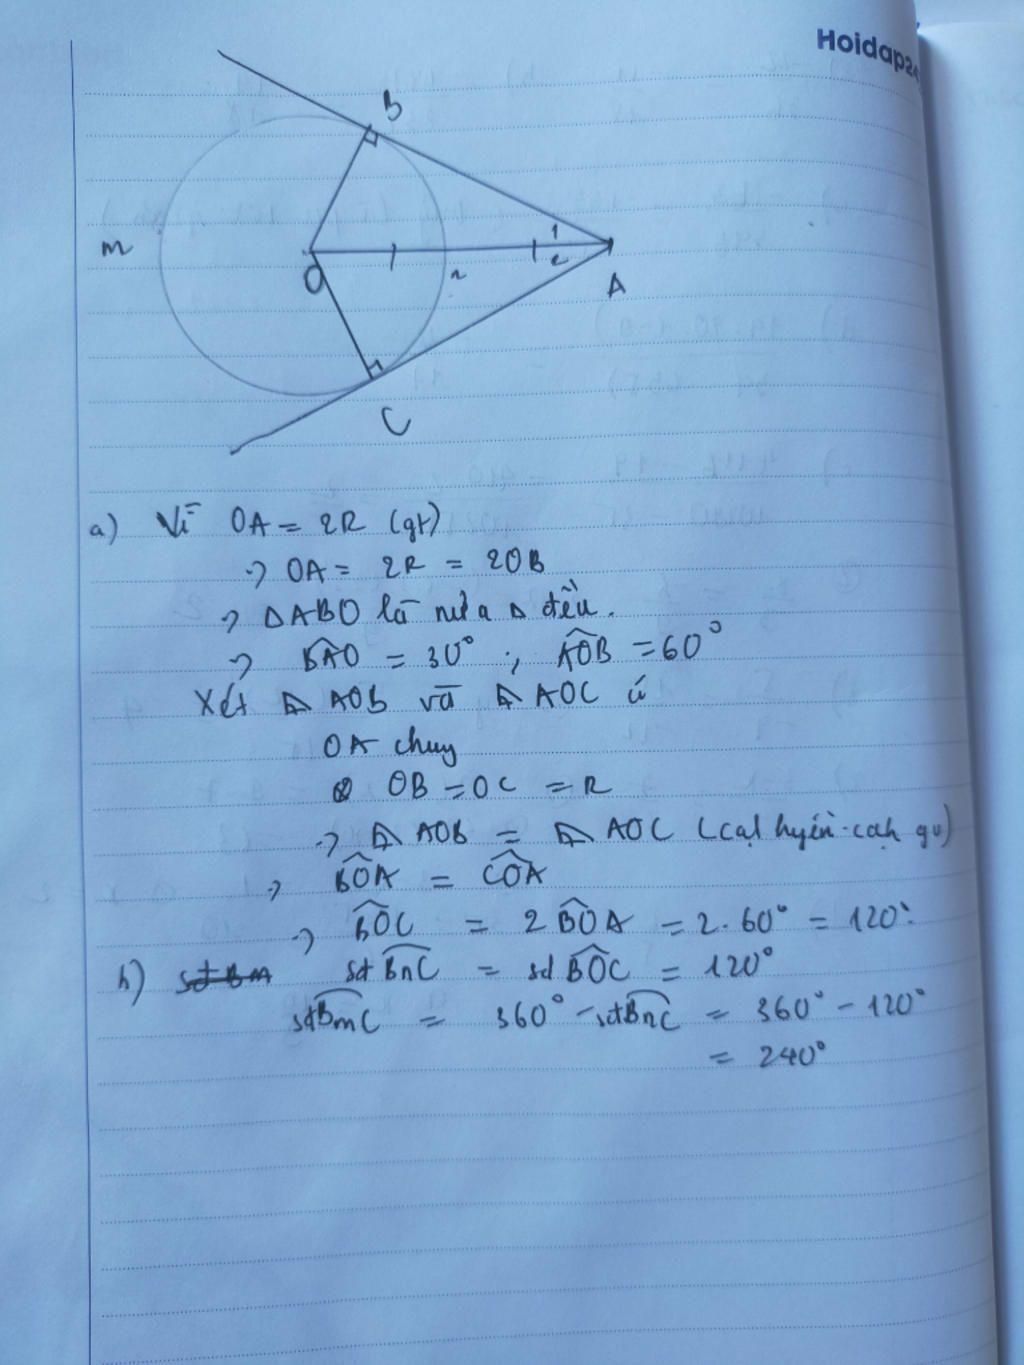 Hoidap24
B
m
1
2
O
n
A
C
a) Vì OA = 2R (gt)
=> OA = 2R = 2OB
=> ΔABO là nửa Δ đều.
=> BAO = 30° ; AOB = 60°
Xét ⊿ AOB và ⊿ AOC có
OA chung
OB = OC = R
=> ⊿ AOB = ⊿ AOC (cạh huyền - cạh gv)
=> BOA = COA
=> BOC = 2 BOA = 2 . 60° = 120°
b) sđ BnC = sđ BOC = 120°
sđ BmC = 360° - sđ BnC = 360° - 120°
= 240°